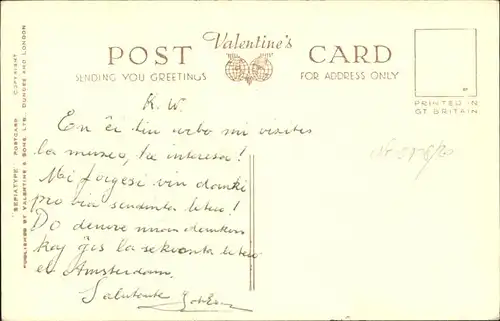 Valentine's
POST CARD
SENDING YOU GREETINGS FOR ADDRESS ONLY
PRINTED IN
GT. BRITAIN
"SEPIATYPE" POSTCARD COPYRIGHT
PUBLISHED BY VALENTINE & SONS, LTD., DUNDEE AND LONDON
K. W.
En ĉi tiu urbo mi visites
la museo, tre interesa!
Mi forgesi vin danki
pro via sendinta letero!
Do denove miajn dankon
kaj ĝis la sekvanta letero
el Amsterdam.
Salutante